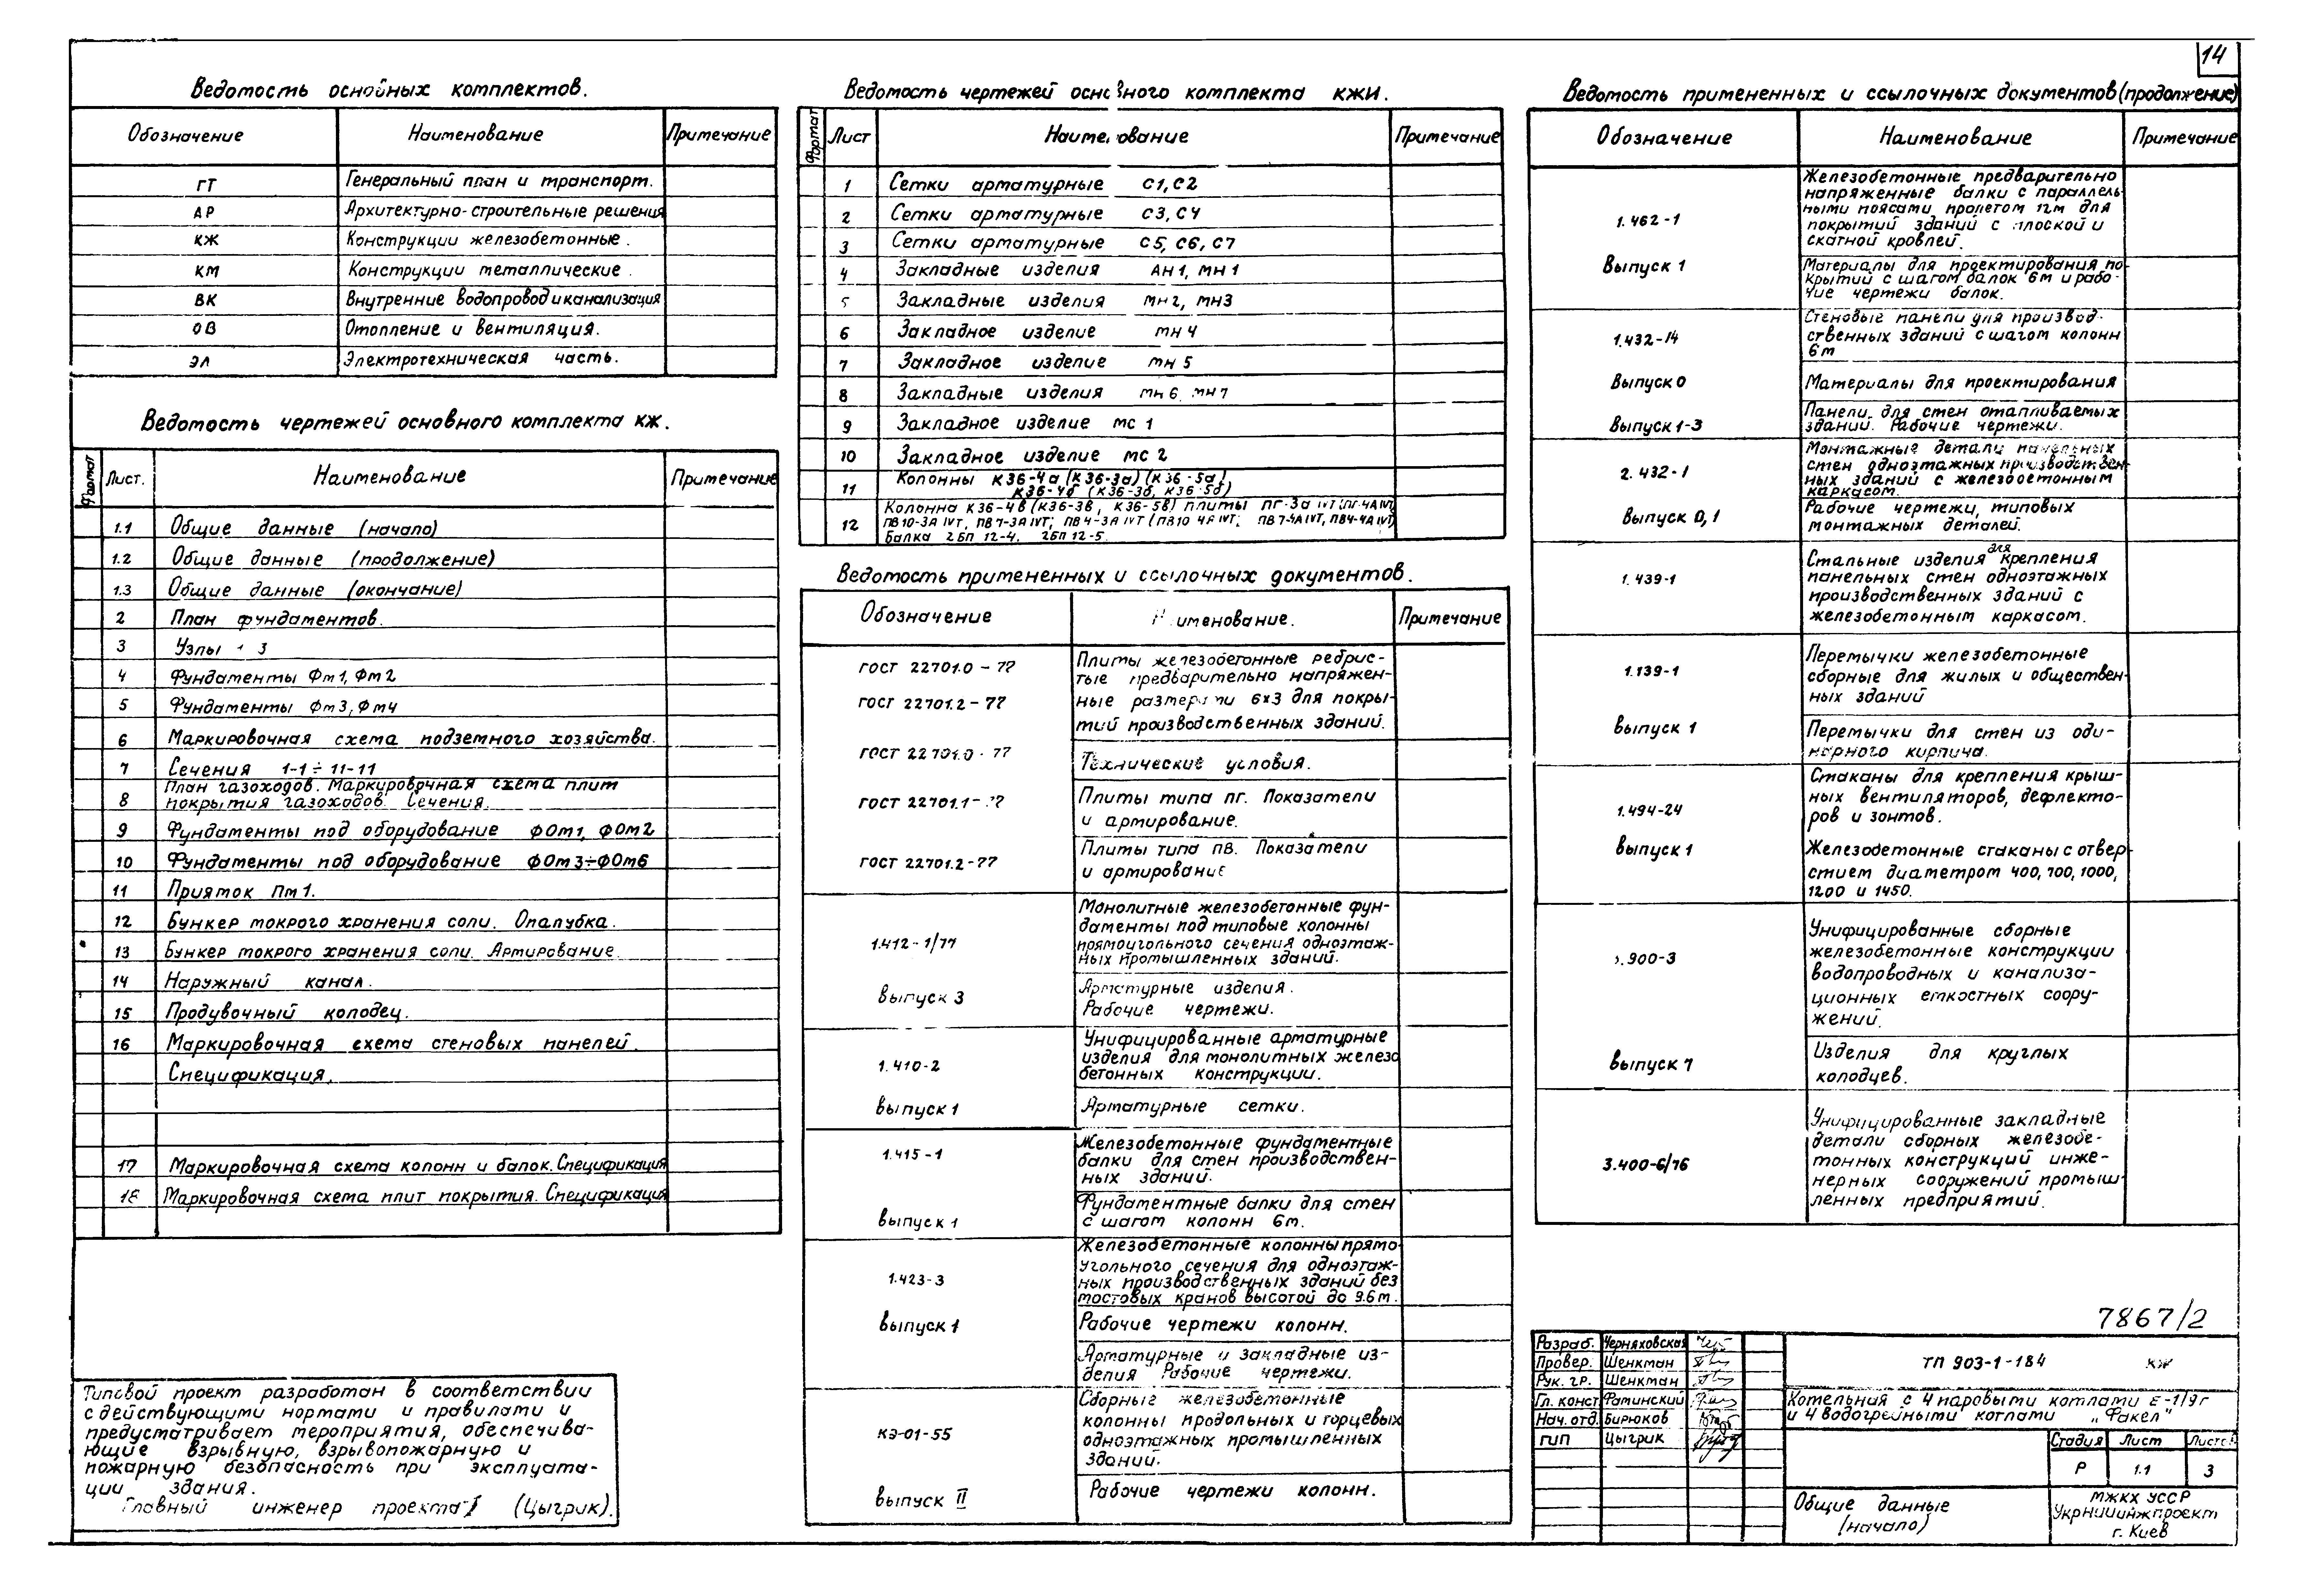 14
Ведомость основных комплектов.
Обозначение Наименование Примечание
ГТ Генеральный план и транспорт.
АР Архитектурно-строительные решения
КЖ Конструкции железобетонные.
КМ Конструкции металлические.
ВК Внутренние водопровод и канализация
ОВ Отопление и вентиляция.
ЭЛ Электротехническая часть.
Ведомость чертежей основного комплекта КЖ.
Формат Лист. Наименование Примечание
1.1 Общие данные (начало)
1.2 Общие данные (продолжение)
1.3 Общие данные (окончание)
2 План фундаментов.
3 Узлы 1 3
4 Фундаменты Фм1, Фм2
5 Фундаменты Фм3, Фм4
6 Маркировочная схема подземного хозяйства.
7 Сечения 1-1÷11-11
8 План газоходов. Маркировочная схема плит
покрытия газоходов. Сечения.
9 Фундаменты под оборудование ФОм1, ФОм2
10 Фундаменты под оборудование ФОм3÷ФОм6
11 Приямок Пм1.
12 Бункер мокрого хранения соли. Опалубка.
13 Бункер мокрого хранения соли. Армирование.
14 Наружный канал.
15 Продувочный колодец.
16 Маркировочная схема стеновых панелей.
Спецификация.
17 Маркировочная схема колонн и балок. Спецификация
18 Маркировочная схема плит покрытия. Спецификация
Типовой проект разработан в соответствии
с действующими нормами и правилами и
предусматривает мероприятия, обеспечива-
ющие взрывную, взрывопожарную и
пожарную безопасность при эксплуата-
ции здания.
Главный инженер проекта (Цыгрик).
Ведомость чертежей основного комплекта КЖИ.
Формат Лист Наименование Примечание
1 Сетки арматурные С1, С2
2 Сетки арматурные С3, С4
3 Сетки арматурные С5, С6, С7
4 Закладные изделия АН1, МН1
5 Закладные изделия МН2, МН3
6 Закладное изделие МН4
7 Закладное изделие МН5
8 Закладные изделия МН6, МН7
9 Закладное изделие МС1
10 Закладное изделие МС2
11 Колонны К36-4а (К36-3а) (К36-5а)
К36-4б (К36-3б, К36-5б)
12 Колонна К36-4в (К36-3в, К36-5в) плиты ПГ-3А IVТ (ПГ-4А IVТ)
ПВ10-3А IVТ, ПВ7-3А IVТ; ПВ4-3А IVТ (ПВ10 4А IVТ; ПВ7-4А IVТ, ПВ4-4А IVТ)
Балка 2БП 12-4. 2БП 12-5.
Ведомость примененных и ссылочных документов.
Обозначение Наименование. Примечание
ГОСТ 22701.0-77 Плиты железобетонные ребрис-
тые предварительно напряжен-
ГОСТ 22701.2-77 ные размерами 6х3 для покры-
тий производственных зданий.
ГОСТ 22701.0-77 Технические условия.
ГОСТ 22701.1-77 Плиты типа ПГ. Показатели
и армирование.
ГОСТ 22701.2-77 Плиты типа ПВ. Показатели
и армирование
1.412-1/77 Монолитные железобетонные фун-
даменты под типовые колонны
прямоугольного сечения одноэтаж-
ных промышленных зданий.
выпуск 3 Арматурные изделия.
Рабочие чертежи.
1.410-2 Унифицированные арматурные
изделия для монолитных железо
бетонных конструкции.
выпуск 1 Арматурные сетки.
1.415-1 Железобетонные фундаментные
балки для стен производствен-
ных зданий.
выпуск 1 Фундаментные балки для стен
с шагом колонн 6м.
1.423-3 Железобетонные колонны прямо-
угольного сечения для одноэтаж-
ных производственных зданий без
мостовых кранов высотой до 9.6м.
выпуск 1 Рабочие чертежи колонн.
Арматурные и закладные из-
делия Рабочие чертежи.
КЭ-01-55 Сборные железобетонные
колонны продольных и торцевых
одноэтажных промышленных
зданий.
выпуск II Рабочие чертежи колонн.
Ведомость примененных и ссылочных документов (продолжение)
Обозначение Наименование Примечание
1.462-1 Железобетонные предварительно
напряженные балки с параллель-
ными поясами пролетом 12м для
покрытий зданий с плоской и
скатной кровлей.
Выпуск 1 Материалы для проектирования по-
крытий с шагом балок 6м и рабо-
чие чертежи балок.
1.432-14 Стеновые панели для производ-
ственных зданий с шагом колонн
6м
Выпуск 0 Материалы для проектирования
Выпуск 1-3 Панели для стен отапливаемых
зданий. Рабочие чертежи.
2.432-1 Монтажные детали панельных
стен одноэтажных производствен-
ных зданий с железобетонным
каркасом.
Выпуск 0,1 Рабочие чертежи, типовых
монтажных деталей.
1.439-1 Стальные изделия для крепления
панельных стен одноэтажных
производственных зданий с
железобетонным каркасом.
1.139-1 Перемычки железобетонные
сборные для жилых и обществен-
ных зданий
выпуск 1 Перемычки для стен из оди-
нарного кирпича.
1.494-24 Стаканы для крепления крыш-
ных вентиляторов, дефлекто-
ров и зонтов.
выпуск 1 Железобетонные стаканы с отвер-
стием диаметром 400, 700, 1000,
1200 и 1450.
.900-3 Унифицированные сборные
железобетонные конструкции
водопроводных и канализа-
ционных емкостных соору-
жений.
выпуск 7 Изделия для круглых
колодцев.
3.400-6/76 Унифицированные закладные
детали сборных железобе-
тонных конструкций инже-
нерных сооружений промыш-
ленных предприятий.
7867/2
Разраб. Черняховская
Провер. Шенкман
Рук. гр. Шенкман
Гл. конст. Фаминский
Нач. отд. Бирюков
ГИП Цыгрик
ТП 903-1-184 КЖ
Котельная с 4 паровыми котлами Е-1/9г
и 4 водогрейными котлами „Факел"
Стадия Лист Листов
Р 1.1 3
Общие данные
(начало)
МЖКХ УССР
УкрНИИинжпроект
г. Киев